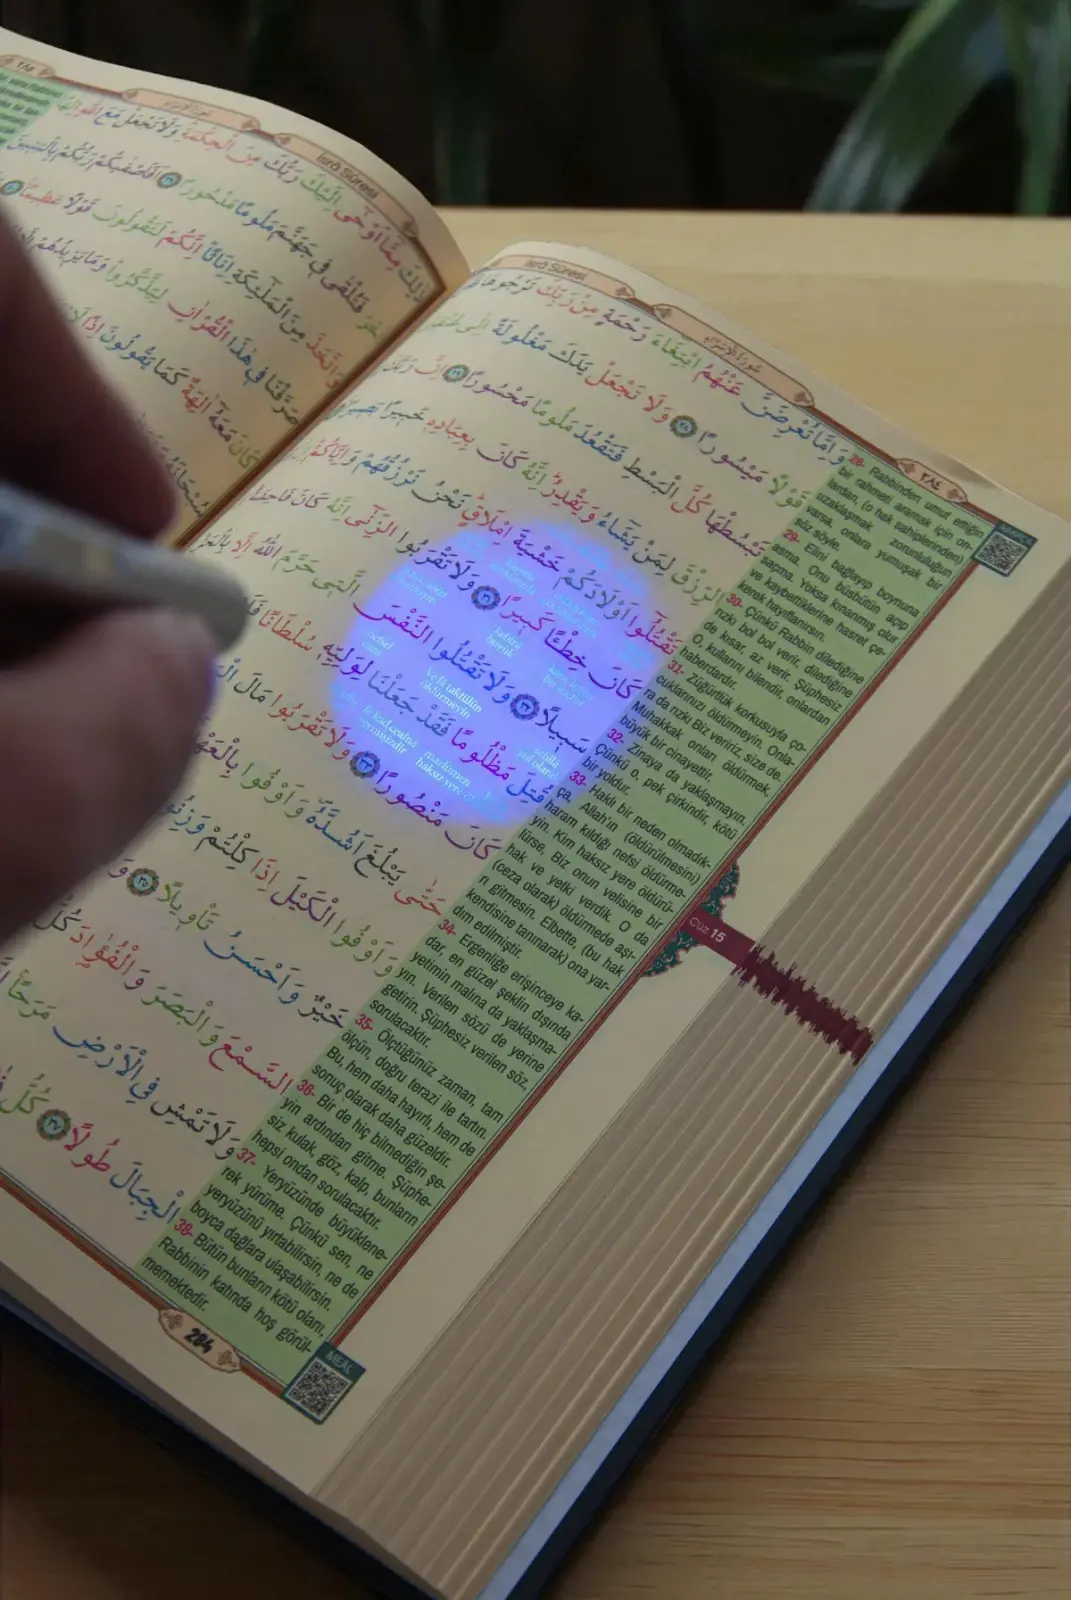 Isrâ Sûresi
ذٰلِكَ مِمَّٓا اَوْحٰٓى اِلَيْكَ رَبُّكَ مِنَ الْحِكْمَةِ وَلَا تَجْعَلْ مَعَ اللّٰهِ
فَتُلْقٰى ف۪ي جَهَنَّمَ مَلُومًا مَدْحُورًا ٣٩ اَفَاَصْفٰيكُمْ رَبُّكُمْ بِالْبَن۪ينَ
وَاتَّخَذَ مِنَ الْمَلٰٓئِكَةِ اِنَاثًا اِنَّكُمْ لَتَقُولُونَ قَوْلًا عَظ۪يمًا
صَرَّفْنَا ف۪ي هٰذَا الْقُرْاٰنِ لِيَذَّكَّرُوا وَمَا يَز۪يدُهُمْ
كَانَ مَعَهُٓ اٰلِهَةٌ كَمَا يَقُولُونَ اِذًا
سُبْحَانَهُ
Isrâ Sûresi
سُورَةُ الْاِسْرَاءِ
٢٨٤
وَاِمَّا تُعْرِضَنَّ عَنْهُمُ ابْتِغَٓاءَ رَحْمَةٍ مِنْ رَبِّكَ تَرْجُوهَا
قَوْلًا مَيْسُورًا ٢٨ وَلَا تَجْعَلْ يَدَكَ مَغْلُولَةً اِلٰى
تَبْسُطْهَا كُلَّ الْبَسْطِ فَتَقْعُدَ مَلُومًا مَحْسُورًا ٢٩ اِنَّ رَبَّكَ
الرِّزْقَ لِمَنْ يَشَٓاءُ وَيَقْدِرُ اِنَّهُ كَانَ بِعِبَادِه۪ خَب۪يرًا بَص۪يرًا
تَقْتُلُٓوا اَوْلَادَكُمْ خَشْيَةَ اِمْلَاقٍ نَحْنُ نَرْزُقُهُمْ وَاِيَّاكُمْ
كَانَ خِطْـًٔا كَب۪يرًا ٣١ وَلَا تَقْرَبُوا الزِّنٰٓى اِنَّهُ كَانَ فَاحِشَةً
سَب۪يلًا ٣٢ وَلَا تَقْتُلُوا النَّفْسَ الَّت۪ي حَرَّمَ اللّٰهُ اِلَّا بِالْحَقِّ
قُتِلَ مَظْلُومًا فَقَدْ جَعَلْنَا لِوَلِيِّه۪ سُلْطَانًا
كَانَ مَنْصُورًا ٣٣ وَلَا تَقْرَبُوا مَالَ
حَتّٰى يَبْلُغَ اَشُدَّهُ وَاَوْفُوا بِالْعَهْدِ
وَاَوْفُوا الْكَيْلَ اِذَا كِلْتُمْ وَزِنُوا
خَيْرٌ وَاَحْسَنُ تَأْو۪يلًا ٣٥
السَّمْعَ وَالْبَصَرَ وَالْفُؤٰادَ كُلُّ
وَلَا تَمْشِ فِي الْاَرْضِ مَرَحًا
الْجِبَالَ طُولًا ٣٧ كُلُّ
velâ taktulûn
öldürmeyin
nefsel
mazlûmen
haksız yere
sebîlâ
yol olarak
kebîrâ
büyük
28- Rabbinden umut ettiğin
bir rahmeti aramak için on-
lardan, (o hak sahiplerinden)
uzaklaşmak zorunluluğun
varsa, onlara yumuşak bir
söz söyle.
29- Elini bağlayıp boynuna
asma. Onu büsbütün açıp
saçma. Yoksa kınanmış olur
ve kaybettiklerine hasret çe-
kerek hayıflanırsın.
30- Çünkü Rabbin dilediğine
rızkı bol bol verir, dilediğine
de kısar, az verir. Şüphesiz
O, kullarını bilendir, onlardan
haberdardır.
31- Züğürtlük korkusuyla ço-
cuklarınızı öldürmeyin. Onla-
ra da rızkı Biz veririz, size de.
Muhakkak onları öldürmek,
büyük bir cinayettir.
32- Zinaya da yaklaşmayın.
Çünkü o, pek çirkindir, kötü
bir yoldur.
33- Haklı bir neden olmadık-
ça, Allah'ın (öldürülmesini)
haram kıldığı nefsi öldürme-
yin. Kim haksız yere öldürü-
lürse, Biz onun velisine bir
hak ve yetki verdik. O da
(ceza olarak) öldürmede aşı-
rı gitmesin. Elbette, (bu hak
kendisine tanınarak) ona yar-
dım edilmiştir.
34- Ergenliğe erişinceye ka-
dar, en güzel şeklin dışında
yetimin malına da yaklaşma-
yın. Verilen sözü de yerine
getirin. Şüphesiz verilen söz,
sorulacaktır.
35- Ölçtüğünüz zaman, tam
ölçün, doğru terazi ile tartın.
Bu, hem daha hayırlı, hem de
sonuç olarak daha güzeldir.
36- Bir de hiç bilmediğin şe-
yin ardından gitme. Şüphe-
siz kulak, göz, kalp, bunların
hepsi ondan sorulacaktır.
37- Yeryüzünde büyüklene-
rek yürüme. Çünkü sen, ne
yeryüzünü yırtabilirsin, ne de
boyca dağlara ulaşabilirsin.
38- Bütün bunların kötü olanı,
Rabbinin katında hoş görül-
memektedir.
Cüz 15
284
MEAL